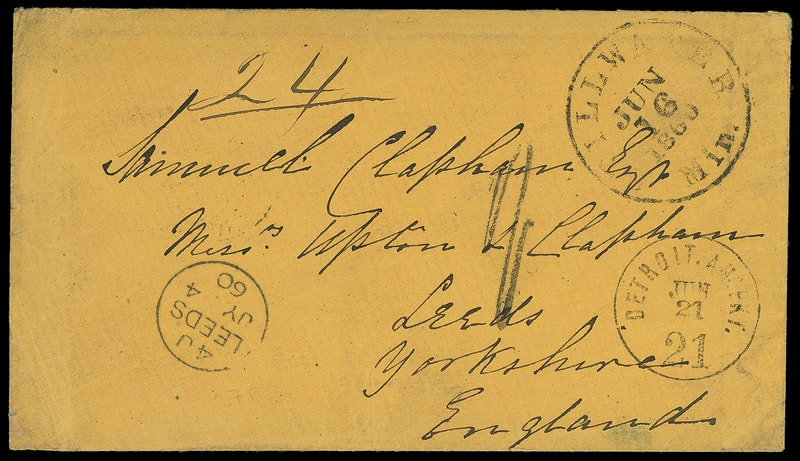 24
STILLWATER Min.
JUN
16
1860
Samuel Clapham Esqr
Messrs Upton & Clapham
Leeds
Yorkshire
England
DETROIT. AM. PKT.
JUN
21
21
4 J
LEEDS
JY 4
60